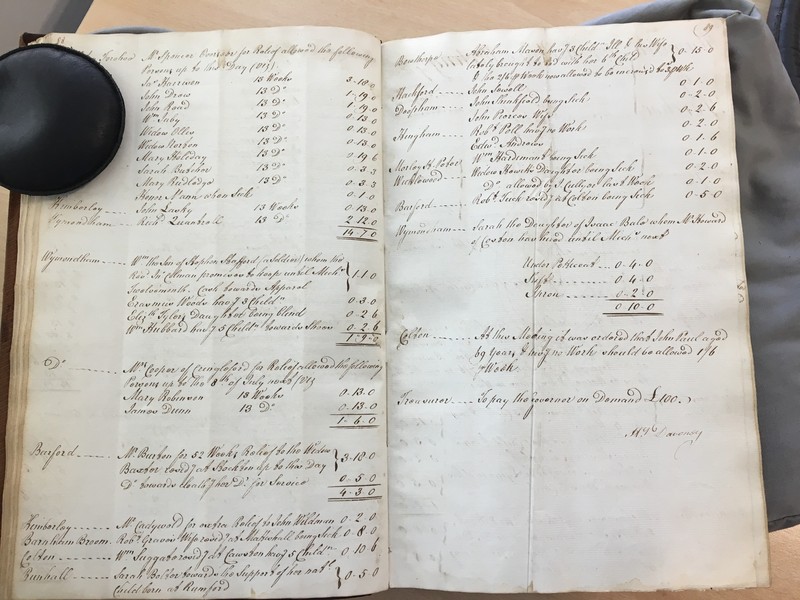 Mr. Spooner for Relief allowed the following
Persons up to this Day (Viz)
Jas. Harrison 13 Weeks 3-18-0
John Drew 13 Do. 1-19-0
John Road 13 Do. 1-19-0
Wm. Juby 13 Do. 0-13-0
Widow Olley 13 Do. 0-13-0
Widow Norton 13 Do. 0-13-0
Mary Holiday 13 Do. 0-19-6
Sarah Butcher 13 Do. 0-3-3
Mary Rudledge 13 Do. 0-3-3
Henry Mann when Sick 0-1-0
Kimberley John Lasky 13 Weeks 0-13-0
Wymondham Richd. Quantrell 13 Do. 2-12-0
14-7-0
Wymondham Wm. the Son of Stephen Stafford (a Soldier) whom the
Revd. Jn. Colman promises to keep until Michs.
Twelvemonth. Cash towards Apparel 1-1-0
Erasmus Woods havg. 3 Childn. 0-3-0
Edwd. Tylers Daughter being blind 0-2-6
Wm. Hubbard havg. 5 Childn. towards Shoes 0-2-6
1-9-0
Do. Mr. Cooper of Cringleford for Relief allowed the following
Persons up to the 8th of July next (Viz)
Mary Robinson 13 Weeks 0-13-0
James Dunn 13 Do. 0-13-0
1-6-0
Burford Mr. Burton for 52 Weeks Relief to the Widow
Baxter residg. at Hockton up to this Day 3-18-0
Do. towards Cloathg. her Dr. for Service 0-5-0
4-3-0
Kimberley Mr. Cadywold for extra Relief to John Wildman 0-2-0
Barnham Broom Robt. Graves Wife residg. at Mattishall being sick 0-8-0
Colton Wm. Suggate residg. at Cawston havg. 5 Childn. 0-10-6
Runhall Sarah Bolter towards the Support of her natl.
Child born at Runford 0-5-0
49
Bowthorpe Abraham Mason havg. 3 Childn. Ill & his Wife
lately brought to bed with her 6th Child 0-15-0
& his 2/6 p Week now allowed to be increased to 3 p Wk
Hackford John Sewell 0-1-0
Deopham John Shinkfield being Sick 0-2-0
John Pearces Wife 0-2-6
Hingham Robt. Poll havg. no Work 0-2-0
Edwd. Andrews 0-1-6
Morley St. Peter Wm. Hardiment being Sick 0-1-0
Wicklewood Widow Howells Daughter being Sick 0-2-0
Do. allowed by J. Cullyer last Week 0-1-0
Barford Robt. Tuck resid. at Colton being Sick 0-5-0
Wymondham Sarah the Daughter of Isaac Bale whom Mr. Howard
of Coston has hired until Michs. next
Under Petticoat 0-4-0
Shift 0-4-0
Apron 0-2-0
0-10-0
Colton At this Meeting it was ordered that John Paul aged
69 Years & havg. no Work should be allowed 1/6
p Week
Treasurer To pay the Governor on Demand £100